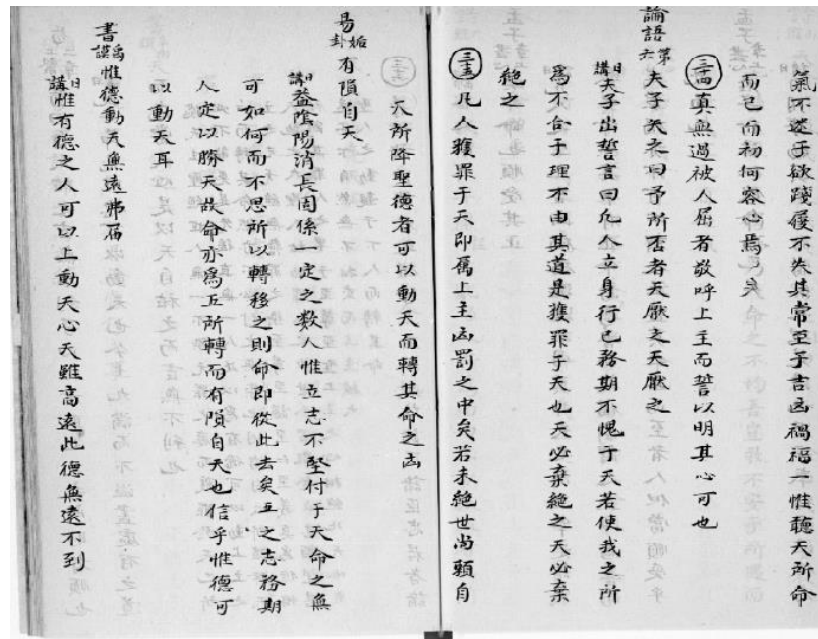 氣不逆子欲踐履不失其常至于吉凶禍福一惟聽天所命
而已而初何容心焉矣
三十四 真無過被人屈者敬呼上主而誓以明其心可也
論語 第六 夫子矢之曰予所否者天厭之天厭之
日講 夫子出誓言曰凡人立身行已務期不愧于天若使我之所
為不合于理不由其道是獲罪于天也天必棄絕之天必棄
絕之
三十五 凡人獲罪于天即属上主凶罰之中矣若未絕世尚願自
天所降聖德者可以動天而轉其命之凶
易 姤卦 有隕自天
日講 益陰陽消長固係一定之数人惟立志不堅付于天命之無
可如何而不思所以轉移之則命即從此去矣五之志務期
人定以勝天故命亦為五所轉而有隕自天也信乎惟德可
以動天耳
書 禹謨 惟德動天無遠弗届
日講 惟有德之人可以上動天心天雖高遠此德無遠不到